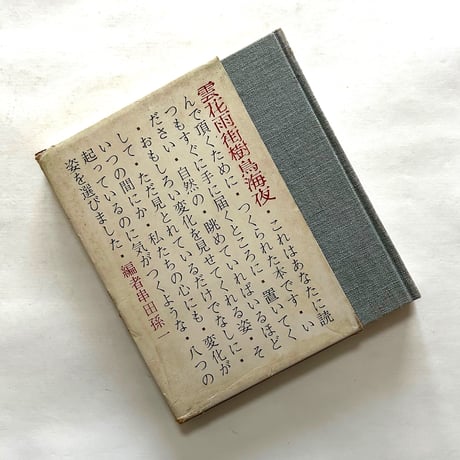 雲花雨街樹鳥海夜・これはあなたに読
んで頂くために・つくられた本です・い
つもすぐに手に届くところに・置いてく
ださい・自然の・眺めていればいるほど
・おもしろい変化を見せてくれる姿・そ
して・ただ見とれているだけでなしに・
いつの間にか・私たちの心にも・変化が
起っているのに気がつくような・八つの
姿を選びました・編者串田孫一